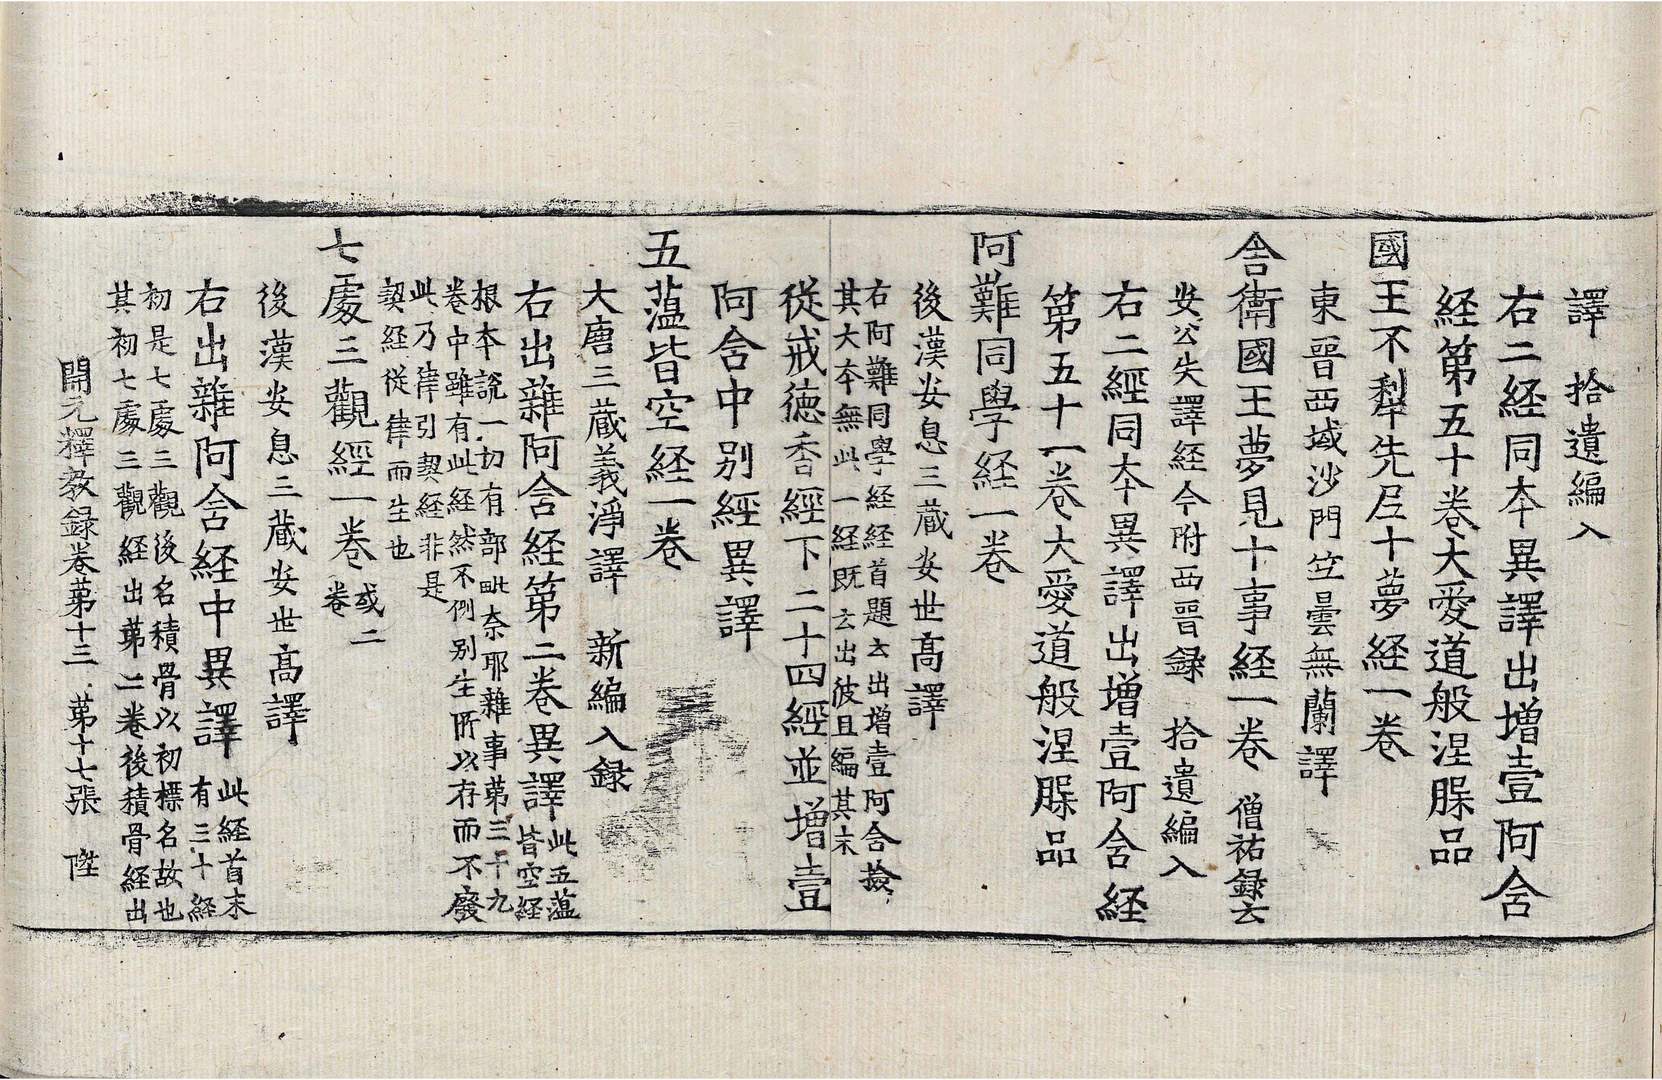 譯　拾遺編入
右二経同本異譯出增壹阿含
経第五十卷大愛道般涅脲品
國王不犁先尼十夢経一卷
東晉西域沙門竺曇無蘭譯
舎衛國王夢見十事経一卷　僧祐録云
安公失譯経今附西晉録　拾遺編入
右二經同本異譯出增壹阿含経
第五十一卷大愛道般涅脲品
阿難同學経一卷
後漢安息三藏安世高譯
右阿難同學経経首題云出增壹阿含撿
其大本無此一経既云出彼且編其末
従戒徳香經下二十四經並增壹
阿含中别經異譯
五蕰皆空経一卷
大唐三藏義淨譯　新編入録
右出雜阿含経第二卷異譯此五蕰
皆空経
根本說一切有部毗奈耶雜事第三十九
卷中雖有此経然不例别生所以存而不廢
此乃律引契経非是
契経從律而生也
七處三觀經一卷或二
卷
後漢安息三藏安世高譯
右出雜阿含経中異譯此経首末
有三十経
初是七處三觀後名積骨以初標名故也
其初七處三觀経出第二卷後積骨経出
開元釋教録卷第十三　第十七張　陞